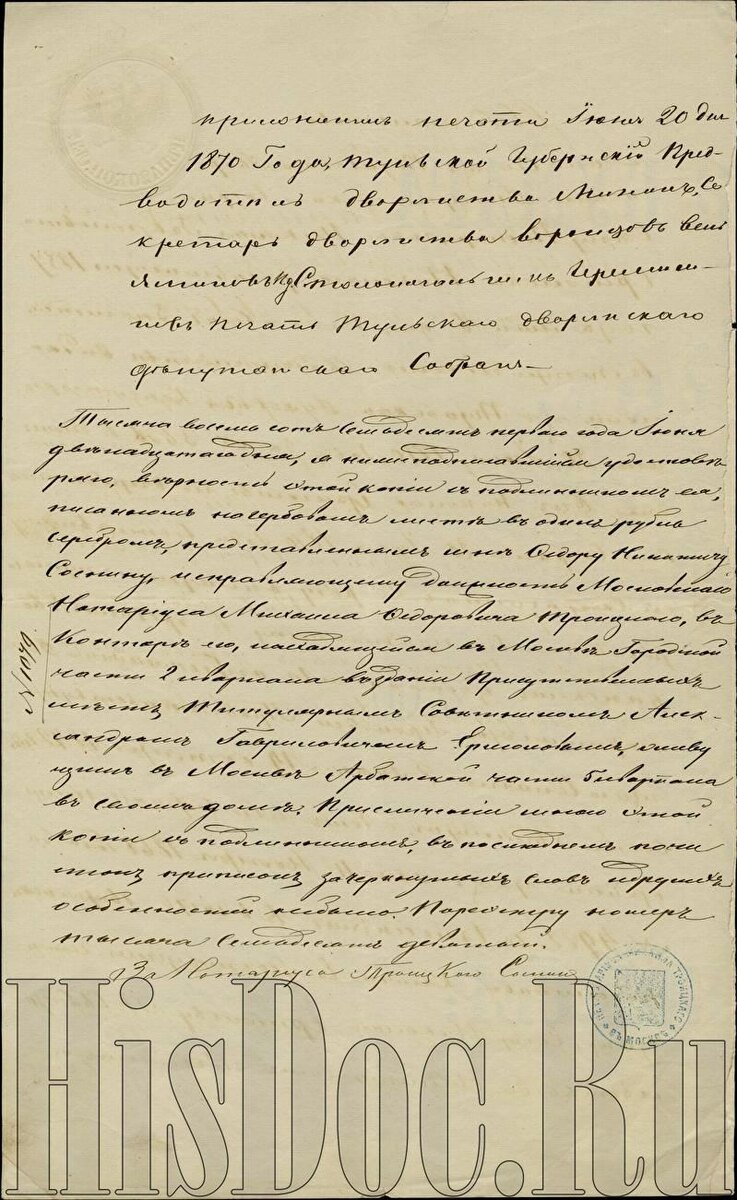 приложеніемъ печати Іюня 20 дня
1870 Года, тульской Губернскій Пред-
водитель дворянства Мининъ, Се
кретарь дворянства
печать тульскаго дворянскаго
депутатскаго Собранія
Тысяча восемь сотъ семьдесятъ перваго года Іюня
двѣнадцатаго дня, я нижеподписавшійся удостовѣ-
ряю, вѣрность этой копіи съ подлинникомъ ея,
писанномъ на гербовомъ листѣ въ одинъ рубль
серебромъ, представленнымъ мнѣ Ѳедору Никитичу
Соснину, исправляющему должность Московскаго
Нотаріуса Михаила Ѳедоровича Троицкаго, въ
Конторѣ его, находящейся въ Москвѣ Городской
части 2 квартала въ зданіи Присутственныхъ
мѣстъ Титулярнымъ Совѣтникомъ Алек-
сандромъ Гавриловичемъ Ермоловымъ, живу
щимъ въ Москвѣ Арбатской части 5 квартала
въ своемъ домѣ. При сличеніи мною этой
копіи съ подлинникомъ, въ послѣднемъ почи
стокъ приписокъ зачеркнутыхъ словъ и другихъ
особенностей не было. По реестру номеръ
тысяча семьдесятъ девятый.
За Нотаріуса Троицкаго Соснинъ
№ 1079
ТРОИЦКАГО * ВЪ МОСКВѢ *
HisDoc.Ru